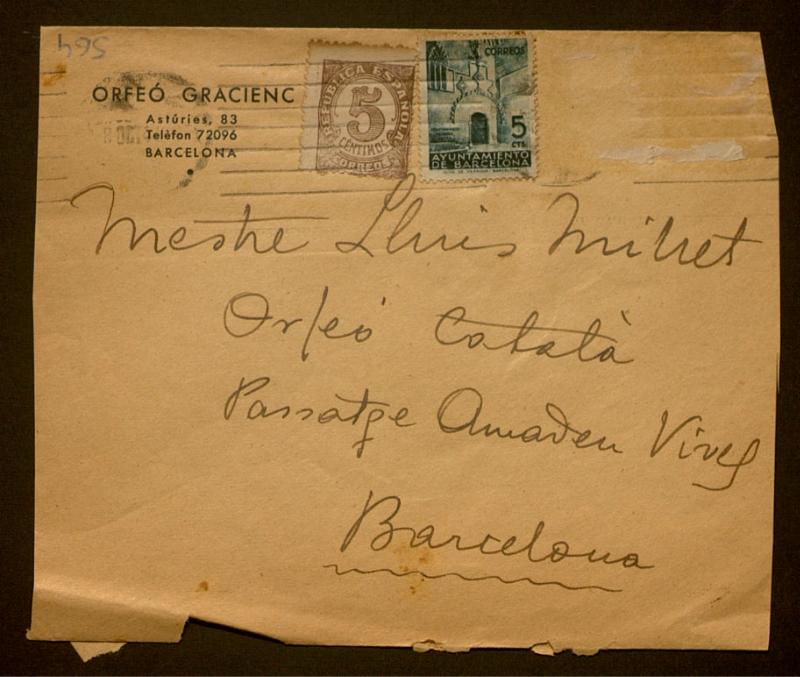 564
ORFEÓ GRACIENC
Astúries, 83
Telèfon 72096
BARCELONA
REPUBLICA ESPAÑOLA
5
CENTIMOS
CORREOS
CORREOS
5
CTS
AYUNTAMIENTO
DE BARCELONA
Mestre Lluis Millet
Orfeó Català
Passatge Amadeu Vives
Barcelona